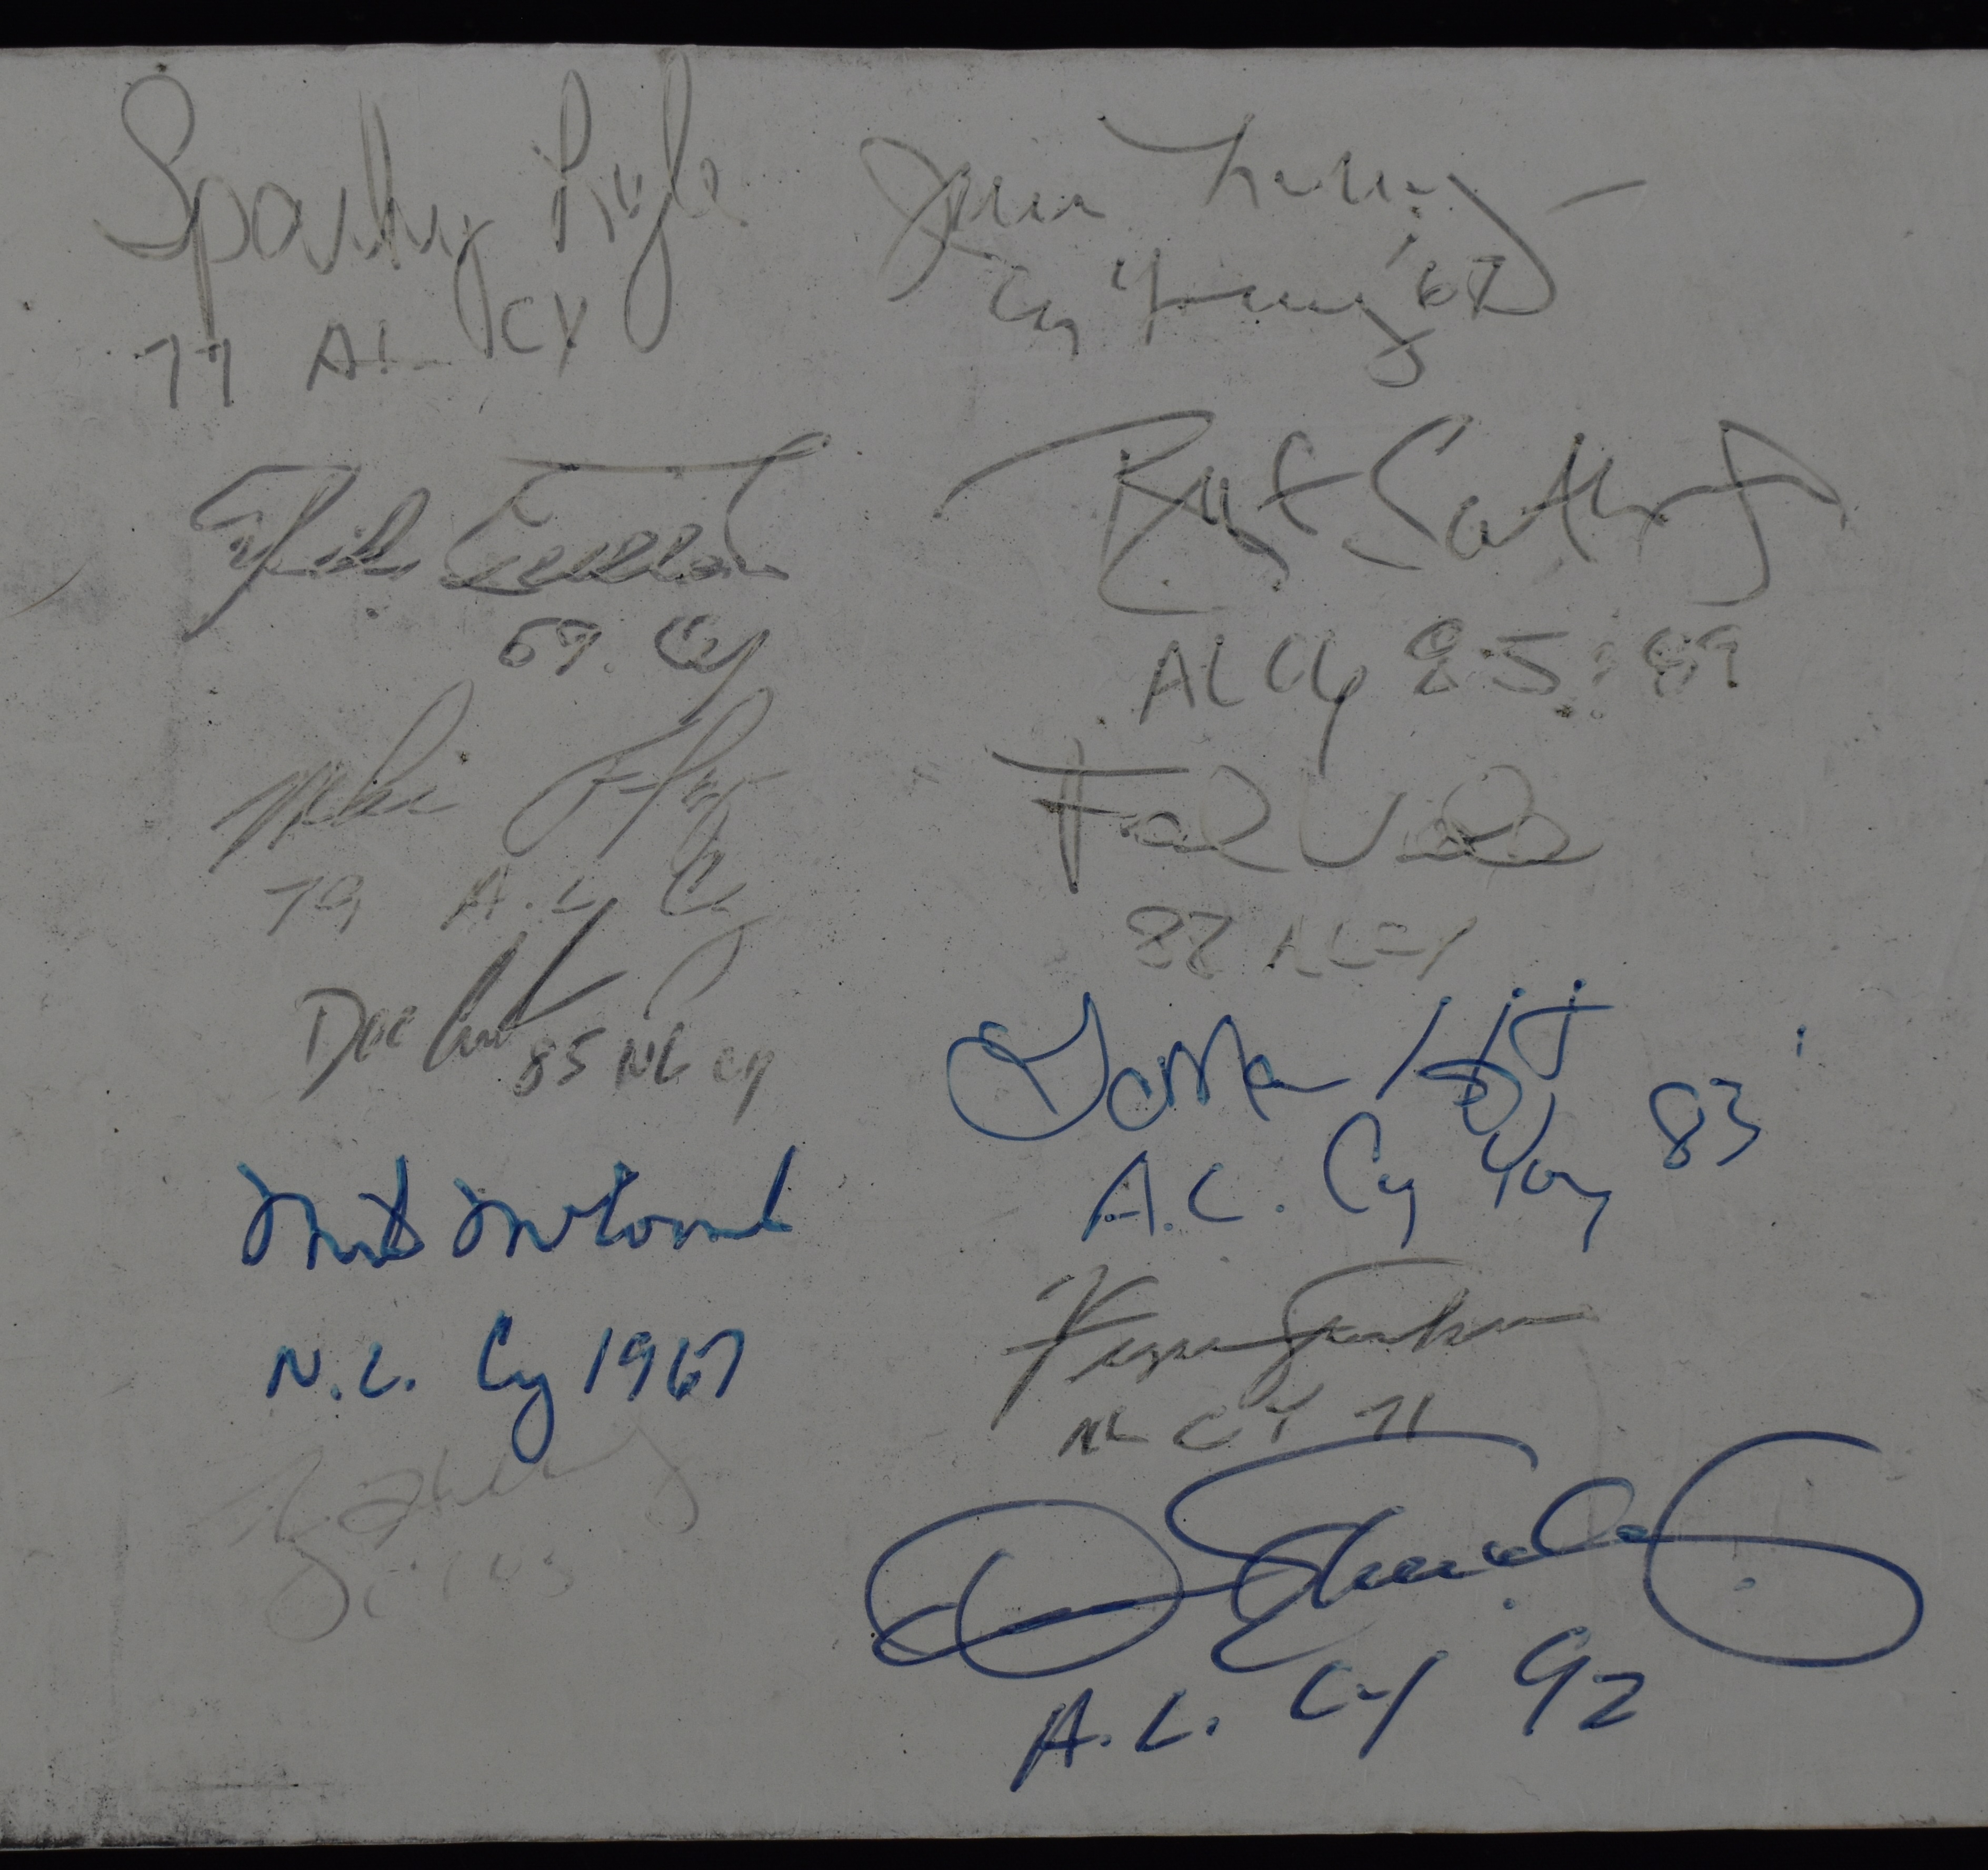 Sparky Lyle
77 AL CY
Jim Lonborg
Cy Young '67
Mike Cuellar
69. Cy
Bret Saberhagen
AL Cy 85 : 89
Mike Flanagan
79 A.L. Cy
Frank Viola
88 AL CY
Doc
85 NL Cy
LaMarr Hoyt
A.L. Cy Young 83
Mike McCormick
N.L. Cy 1967
Ferguson Jenkins
NL CY 71
Dennis Eckersley
A.L. Cy 92